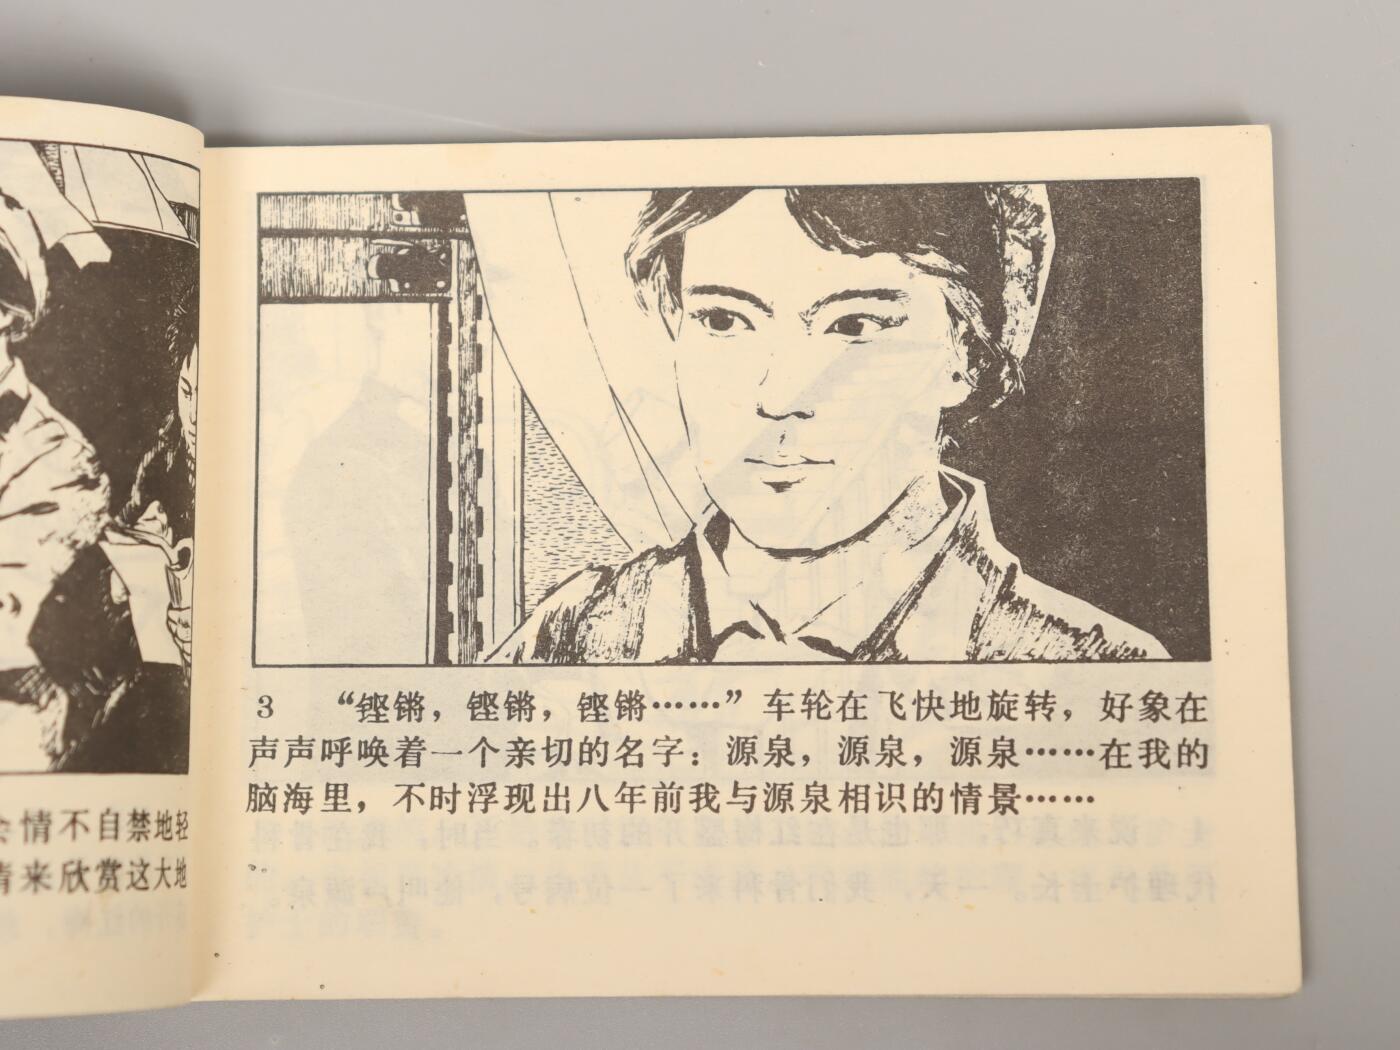 会情不自禁地轻
情来欣赏这大地
3 “铿锵，铿锵，铿锵……”车轮在飞快地旋转，好象在
声声呼唤着一个亲切的名字：源泉，源泉，源泉……在我的
脑海里，不时浮现出八年前我与源泉相识的情景……